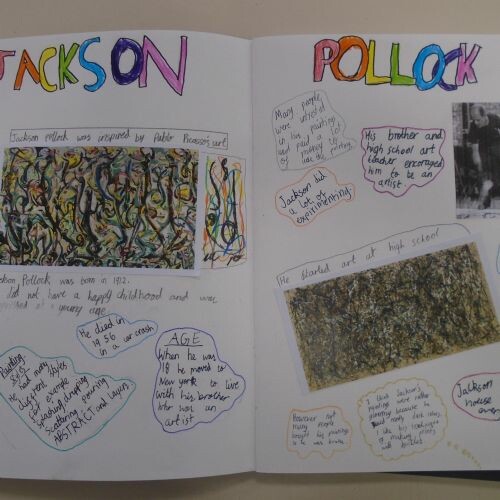 JACKSON
Jackson pollock was inspired by Pablo Picasso's art
Jackson Pollock was born in 1912.
did not have a happy childhood and was
at a young age
He died in
1956
in a car crash
AGE
When he was
18 he moved to
New york to live
with his brother
who was an
artist
Painting
He had many
different styles
for example
splashing, dripping
scattering, pouring
ABSTRACT and layers.
POLLOCK
Many people
were
in his painting
and paid a lot
of money to
His brother and
high school art
teacher encouraged
him to be an
artist.
Jackson did
a lot of
experimenting.
He started art at high school
However not
many people
bought his paintings
as he was
I think Jackson's
paintings were rather
because he
really
I like his technique
of making prints
with
Jackson
house